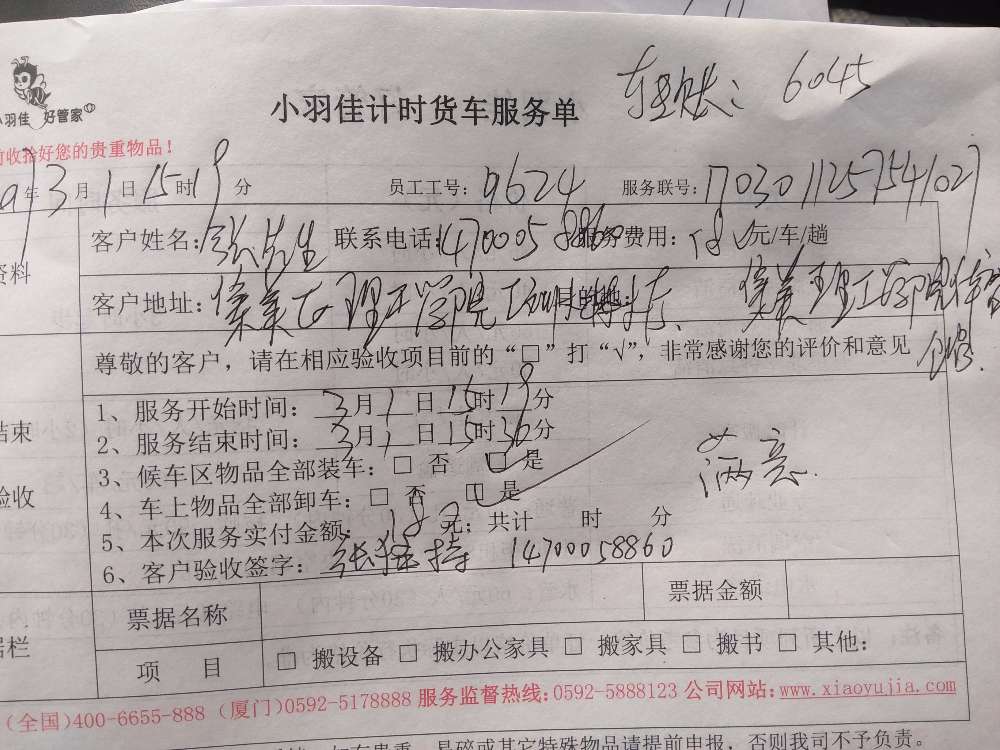 6045
小羽佳 好管家
小羽佳计时货车服务单
收拾好您的贵重物品！
年3月1日15时19分 员工工号：9624 服务联号：
客户姓名：张先生 联系电话：14700058860 服务费用：18元/车/趟
资料
客户地址：集美区理工学院 目的地： 集美理工学院
尊敬的客户，请在相应验收项目前的“□”打“√”，非常感谢您的评价和意见
结束
验收
1、服务开始时间：3月1日15时19分
2、服务结束时间：3月1日15时36分
3、候车区物品全部装车：□ 否 □ 是
满意.
4、车上物品全部卸车：□ 否 □ 是
5、本次服务实付金额：18元；共计 时 分
6、客户验收签字： 14700058860
票据名称 票据金额
据栏
项 目 □ 搬设备 □ 搬办公家具 □ 搬家具 □ 搬书 □ 其他：
(全国)400-6655-888 (厦门)0592-5178888 服务监督热线:0592-5888123 公司网站:www.xiaoyujia.com
易碎或其它特殊物品请提前申报，否则我司不予负责。